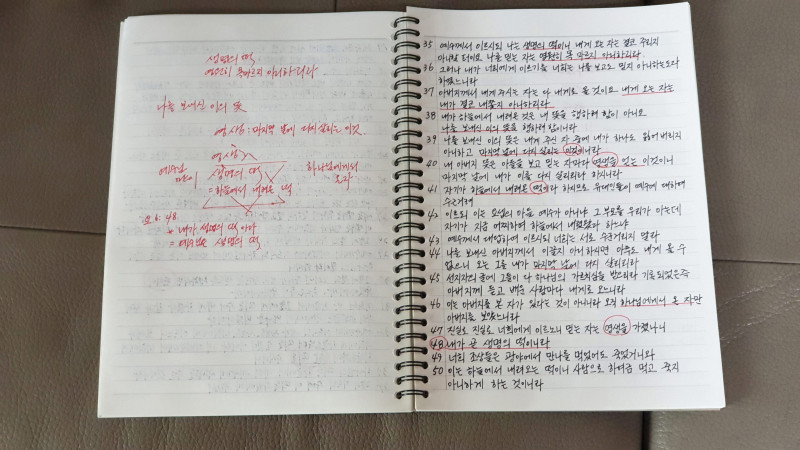 생명의 떡
영원히 목마르지 아니하리라
나를 보내신 이의 뜻
영생: 마지막 날에 다시 살리는 이것.
영생
예수님
생명의 떡
= 하늘에서 내려온 떡
하나님에게서
요 6:48
내가 생명의 떡이다
= 예수님은 생명의 떡
35 예수께서 이르시되 나는 생명의 떡이니 내게 오는 자는 결코 주리지
아니할 터이요 나를 믿는 자는 영원히 목마르지 아니하리라
36 그러나 내가 너희에게 이르기를 너희는 나를 보고도 믿지 아니하는도다
하였느니라
37 아버지께서 내게 주시는 자는 다 내게로 올 것이요 내게 오는 자는
내가 결코 내쫓지 아니하리라
38 내가 하늘에서 내려온 것은 내 뜻을 행하려 함이 아니요
나를 보내신 이의 뜻을 행하려 함이니라
39 나를 보내신 이의 뜻은 내게 주신 자 중에 내가 하나도 잃어버리지
아니하고 마지막 날에 다시 살리는 이것이니라
40 내 아버지 뜻은 아들을 보고 믿는 자마다 영생을 얻는 이것이니
마지막 날에 내가 이를 다시 살리리라 하시니라
41 자기가 하늘에서 내려온 떡이라 하시므로 유대인들이 예수에 대하여
수군거려
42 이르되 이는 요셉의 아들 예수가 아니냐 그 부모를 우리가 아는데
자기가 지금 어찌하여 하늘에서 내려왔다 하느냐
43 예수께서 대답하여 이르시되 너희는 서로 수군거리지 말라
44 나를 보내신 아버지께서 이끌지 아니하시면 아무도 내게 올 수
없으니 오는 그를 내가 마지막 날에 다시 살리리라
45 선지자의 글에 그들이 다 하나님의 가르치심을 받으리라 기록되었은즉
아버지께 듣고 배운 사람마다 내게로 오느니라
46 이는 아버지를 본 자가 있다는 것이 아니니라 오직 하나님에게서 온 자만
아버지를 보았느니라
47 진실로 진실로 너희에게 이르노니 믿는 자는 영생을 가졌나니
48 내가 곧 생명의 떡이니라
49 너희 조상들은 광야에서 만나를 먹었어도 죽었거니와
50 이는 하늘에서 내려오는 떡이니 사람으로 하여금 먹고 죽지
아니하게 하는 것이니라